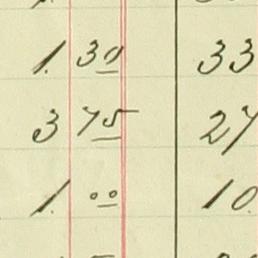 1. 30 33
3 75 27
1. 00 10